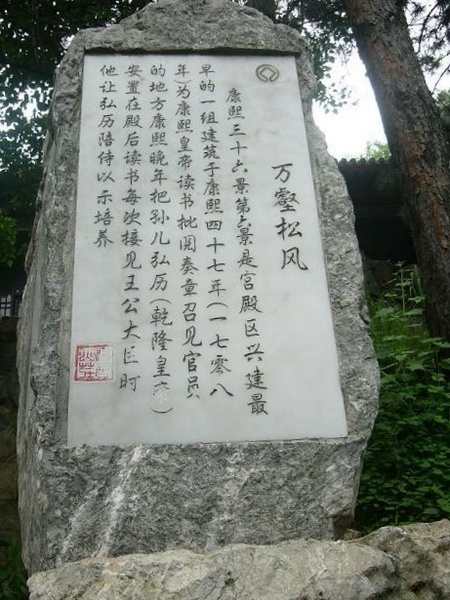 万壑松风
康熙三十六景第六景是宫殿区兴建最
早的一组建筑于康熙四十七年(一七零八
年)为康熙皇帝读书批阅奏章召见官员
的地方康熙晚年把孙儿弘历(乾隆皇帝)
安置在殿后读书每次接见王公大臣时
他让弘历陪侍以示培养